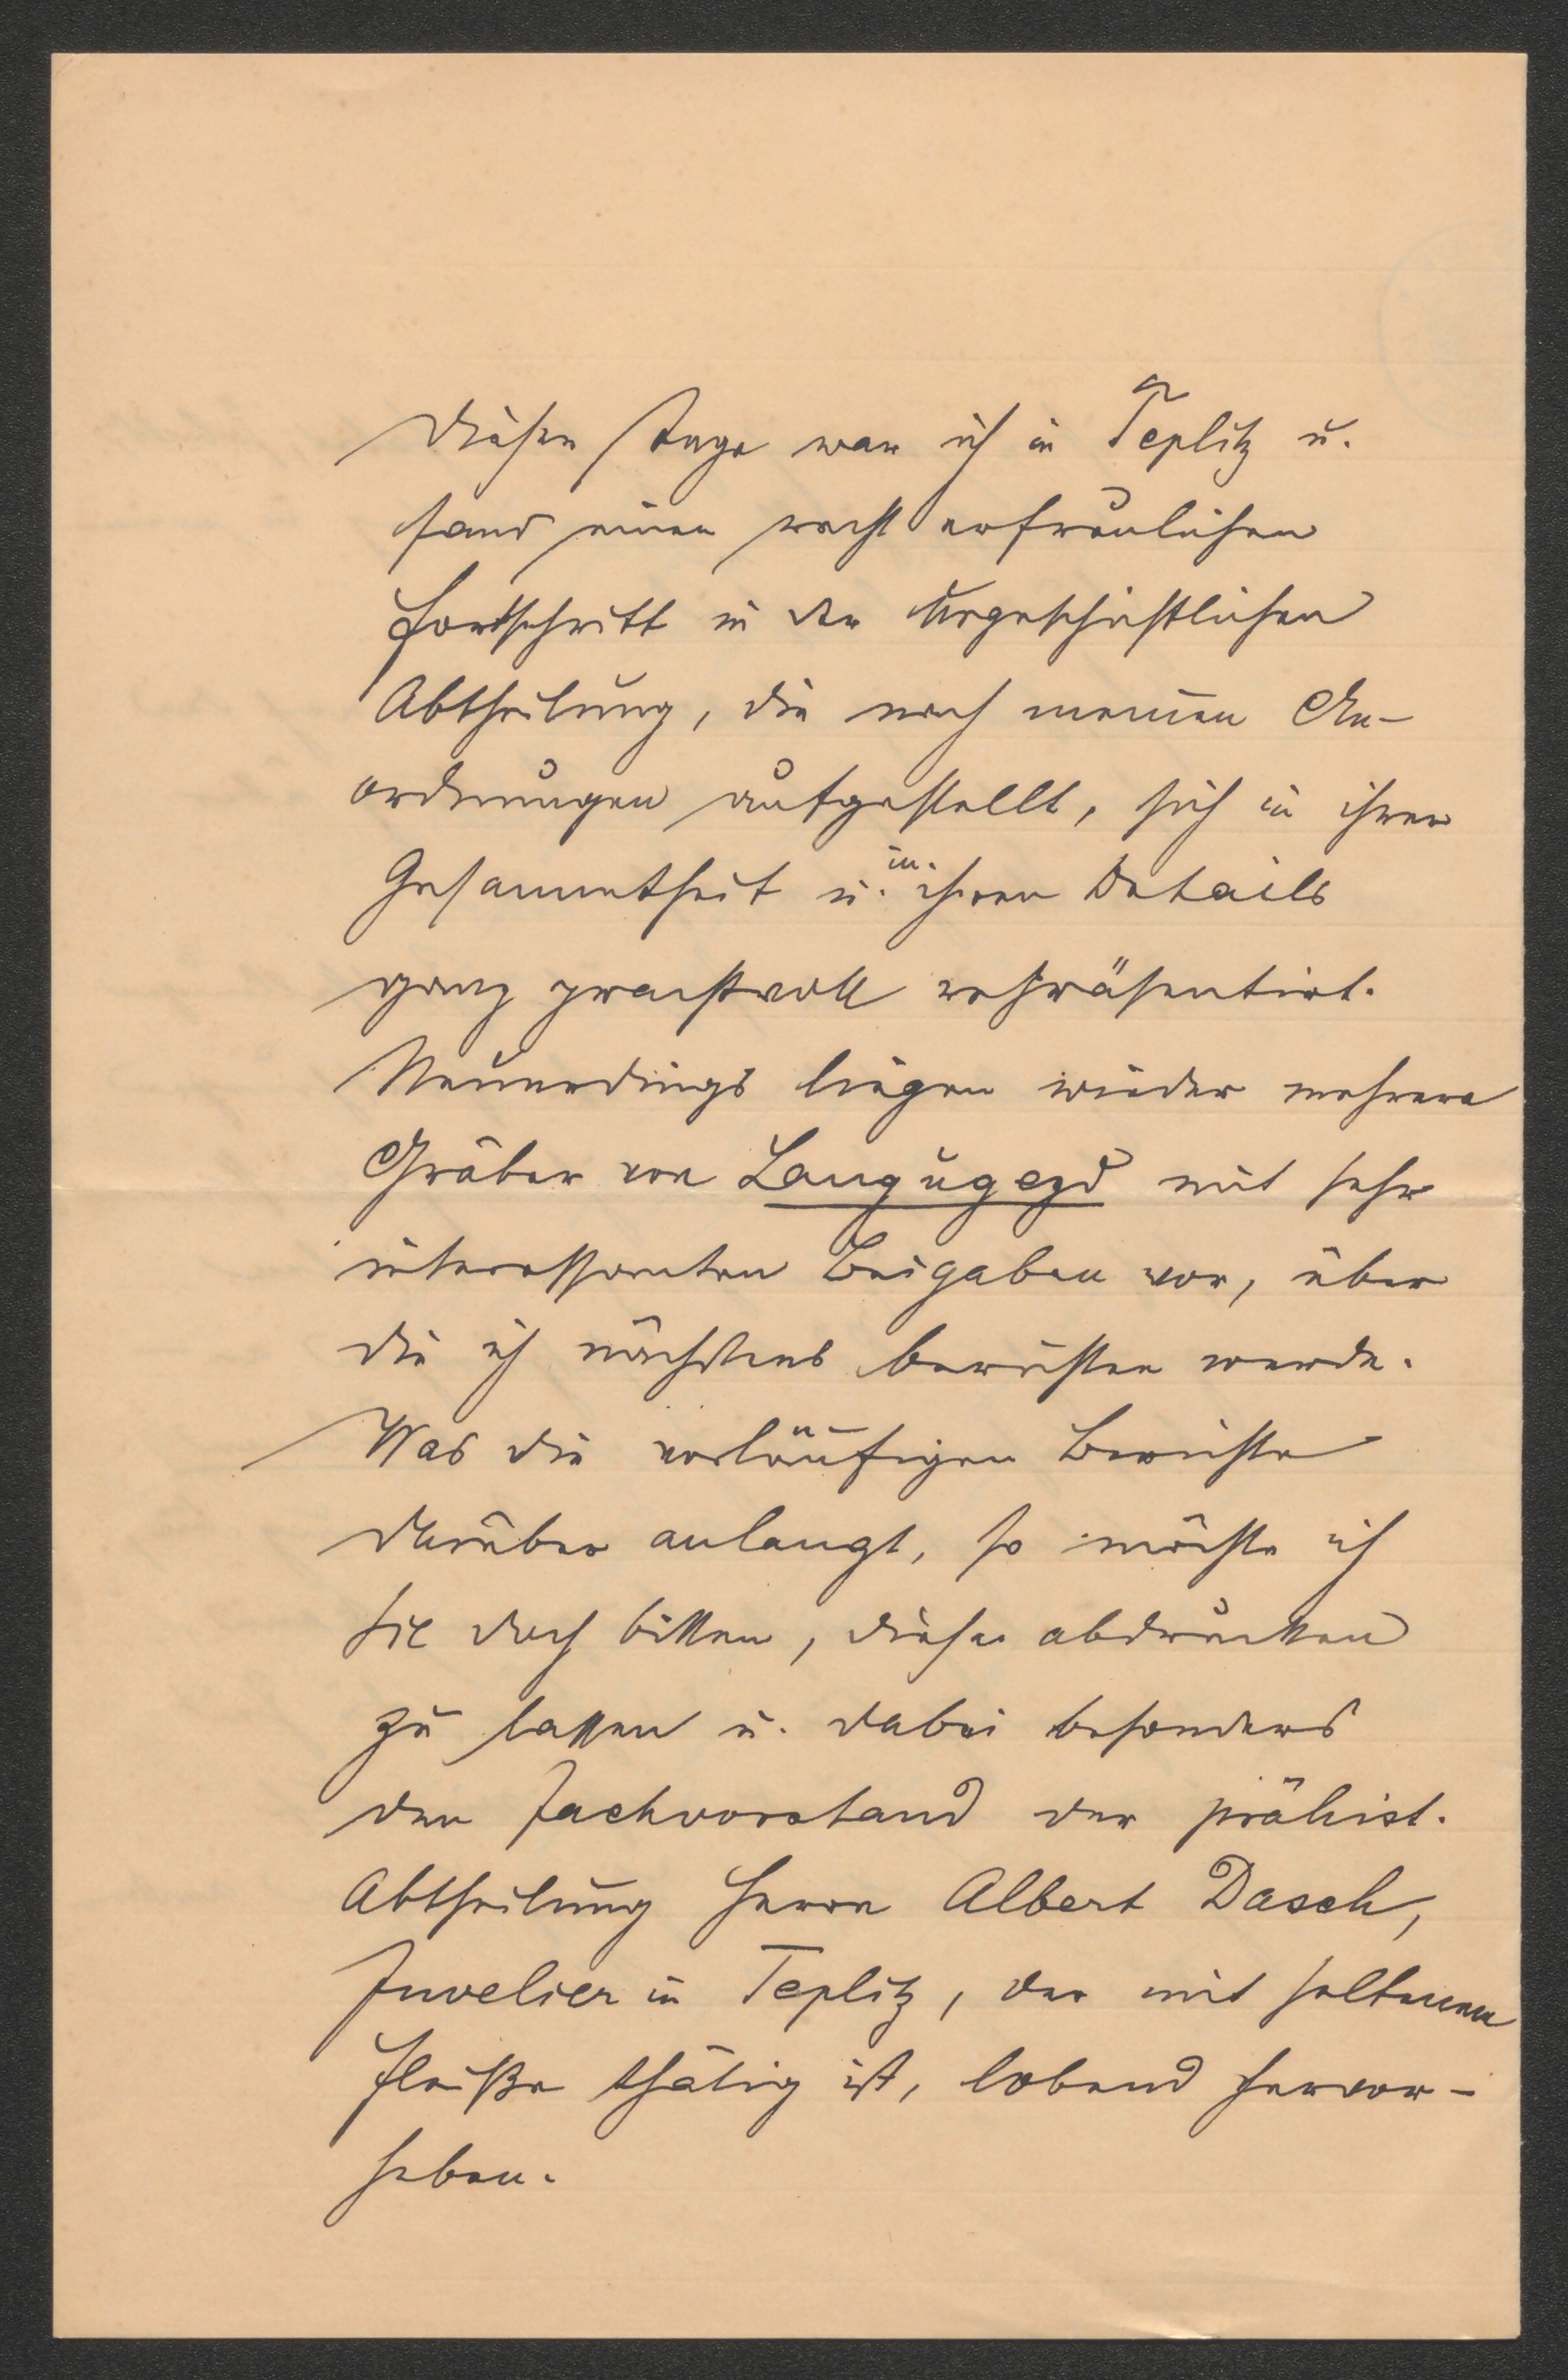 Dieser Tage war ich in Teplitz u.
fand einen recht erfreulichen
Fortschritt in der urgeschichtlichen
Abtheilung, die nach meinen An-
ordnungen aufgestellt, sich in ihrer
Gesammtheit u. in ihren Details
ganz prachtvoll repräsentirt.
Neuerdings liegen wieder mehrere
Gräber von Langugezd mit sehr
interessanten Beigaben vor, über
die ich nächstens berichten werde.
Was die vorläufigen Berichte
darüber anlangt, so möchte ich
Sie doch bitten, diese abdrucken
zu lassen u. dabei besonders
den Fachvorstand der prähist.
Abtheilung Herrn Albert Dasch,
Juwelier in Teplitz, der mit seltenem
Fleiße thätig ist, lobend hervor-
heben.